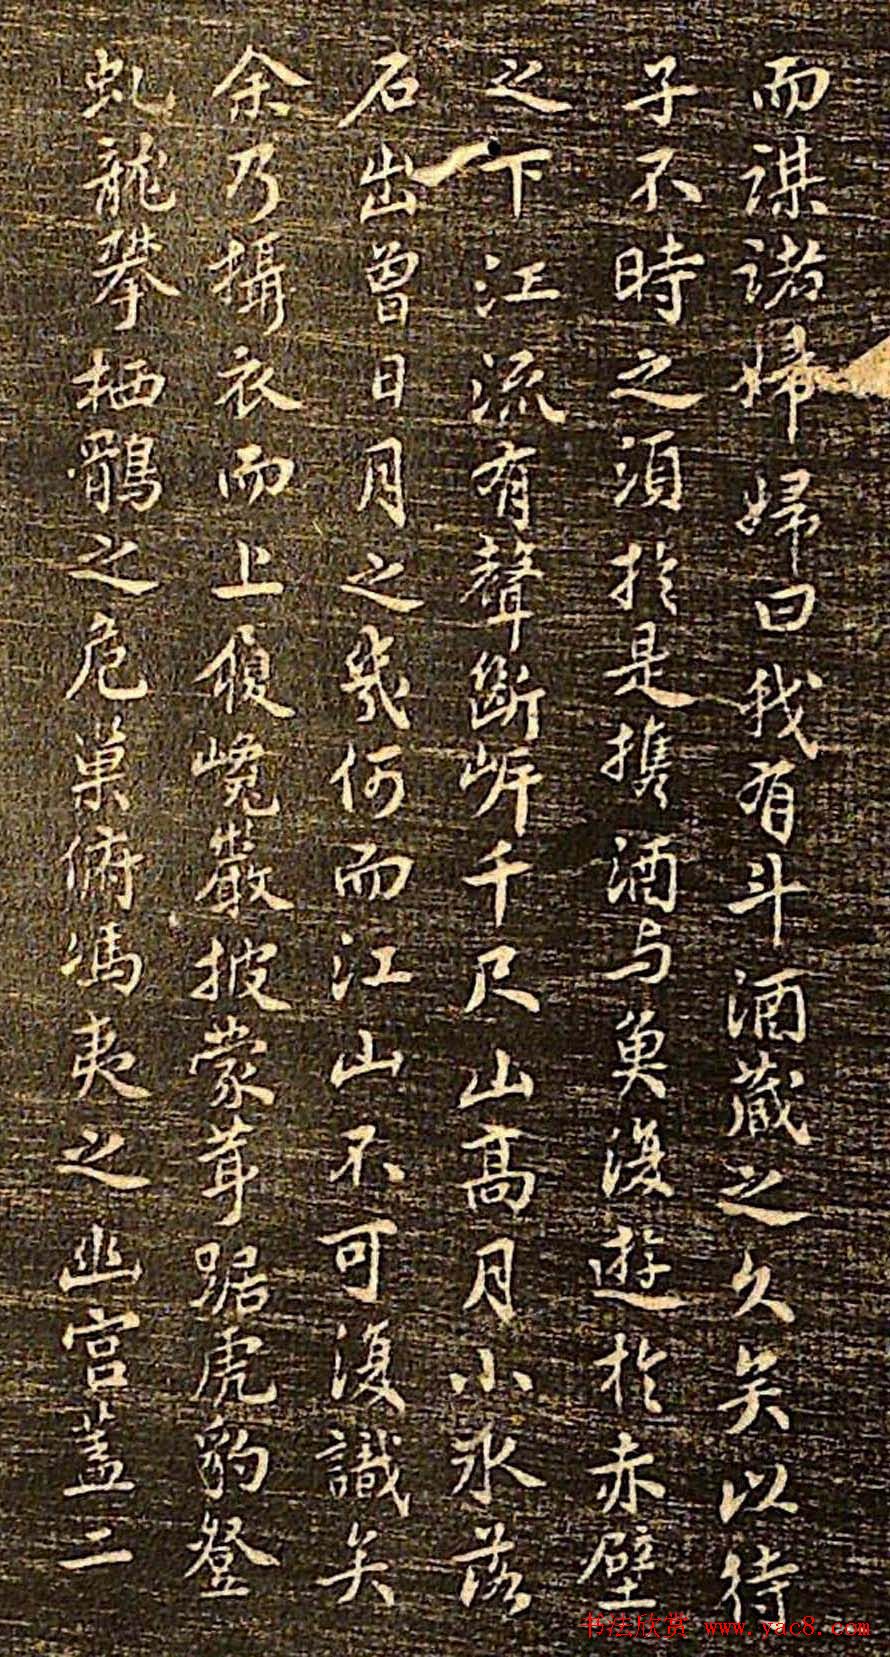 而謀諸婦婦曰我有斗酒藏之久矣以待
子不時之須於是携酒与魚復遊於赤壁
之下江流有聲斷岸千尺山高月小水落
石出曾日月之幾何而江山不可復識矣
余乃攝衣而上履巉巖披蒙茸踞虎豹登
虬龍攀栖鶻之危巢俯馮夷之幽宮蓋二
书法欣赏 www.yac8.com